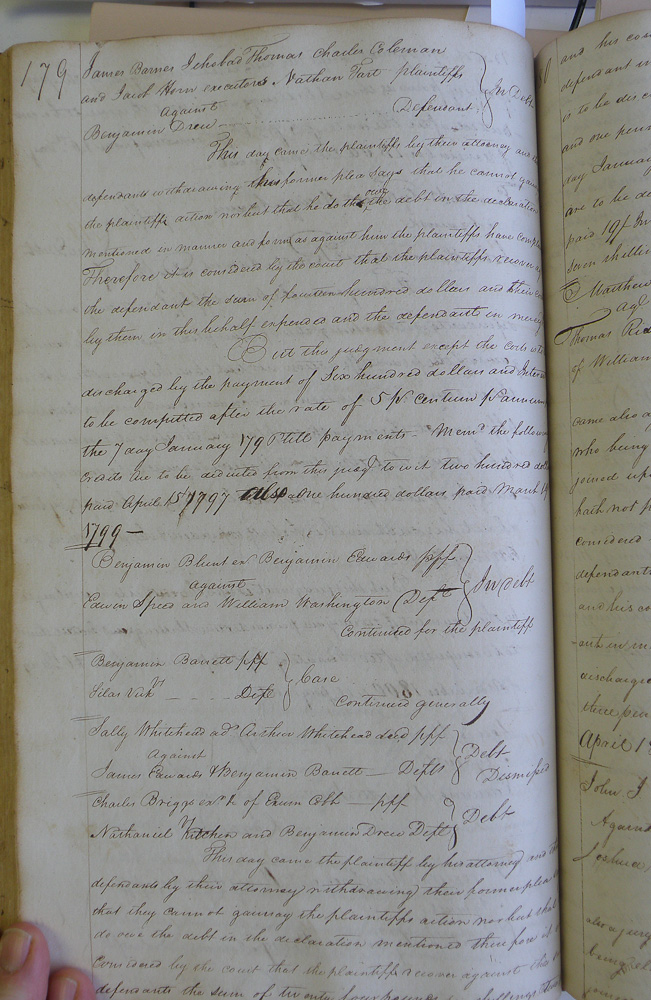 179
James Barnes Ichobad Thomas Charles Coleman
and Jacob Horn executors Nathan Tart plaintiffs
against
Benjamin Drew Defendant
In Debt
This day came the plaintiffs by their attorney and
defendants withdrawing his former plea says that he cannot gain
the plaintiffs action nor but that he do owe the debt in the declaration
mentioned in manner and form as against him the plaintiffs have
Therefore it is considered by the court that the plaintiffs recover
the defendant the sum of fourteen hundred dollars and their
by them in this behalf expended and the defendants in mercy
But this judgment except the costs is to
discharged by the payment of Six hundred dollars and Inter
to be computed after the rate of 5 pr centum pr annum
the 7 day January 179 till payments - Memd the follow
credits are to be deducted from this judgt to wit two hundred
paid April 15 1797 also a One hundred dollars paid March
1799 -
Benjamin Blunt exr Benjamin Edwards plff
against
Edwin Speed and William Washington Defts
In debt
Continued for the plaintiff
Benjamin Barrett plff
Silas Deft
Case
Continued generally
Sally Whitehead ad Arthur Whitehead decd plff
against
James Edwards & Benjamin Barrett - Defts
Debt
Dismissed
Charles Briggs exr &c of Exum Cobb - plff
Nathaniel Kitchen and Benjamin Drew Defts
Debt
This day came the plaintiff by his attorney and the
defendants by their attorney withdrawing their former plea
that they cannot gainsay the plaintiffs action nor but that
do owe the debt in the declaration mentioned therefore it
Considered by the court that the plaintiff recover against the
defendants the sum of twenty four pounds
and his cos
defendant in
is to be disc
and one penn
day January
are to be de
paid 19t
seven shillin
Matthew
agt
Thomas Rid
of William
came also
who being
joined up
hath not p
considered
defendants
and his co
ant in m
discharged
three pen
April 1
John J
Against
Joshua
also a jury
being el